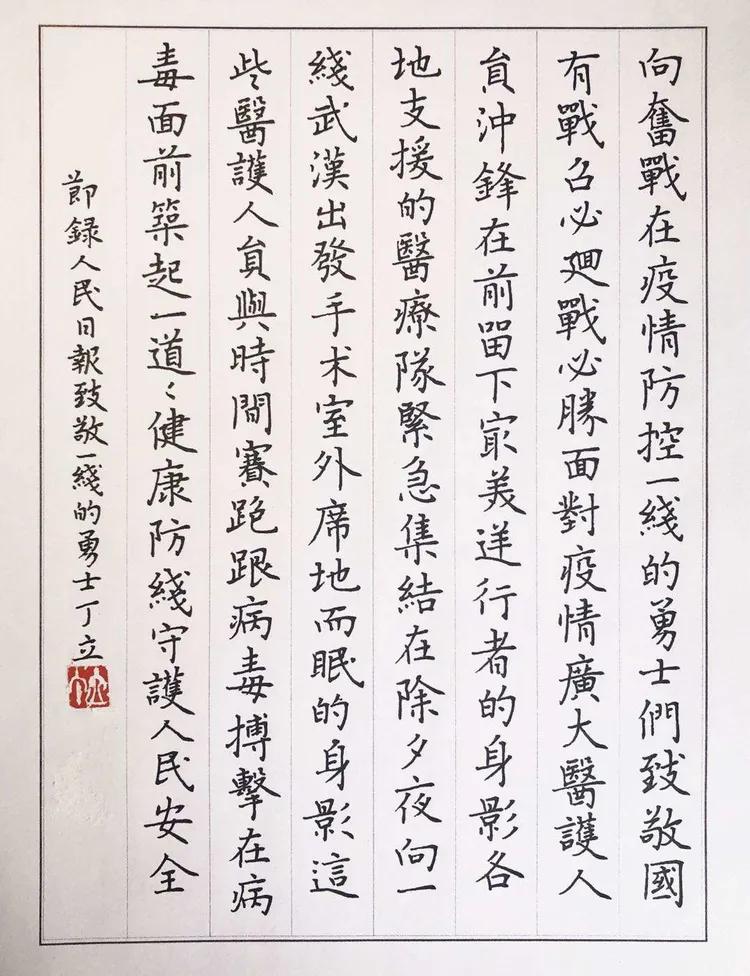 向奮戰在疫情防控一綫的勇士們致敬國
有戰召必廻戰必勝面對疫情廣大醫護人
員沖鋒在前留下冣美逆行者的身影各
地支援的醫療隊緊急集結在除夕夜向一
綫武漢出發手术室外席地而眠的身影這
些醫護人員與時間賽跑跟病毒搏擊在病
毒面前築起一道〻健康防綫守護人民安全
節録人民日報致敬一綫的勇士丁立